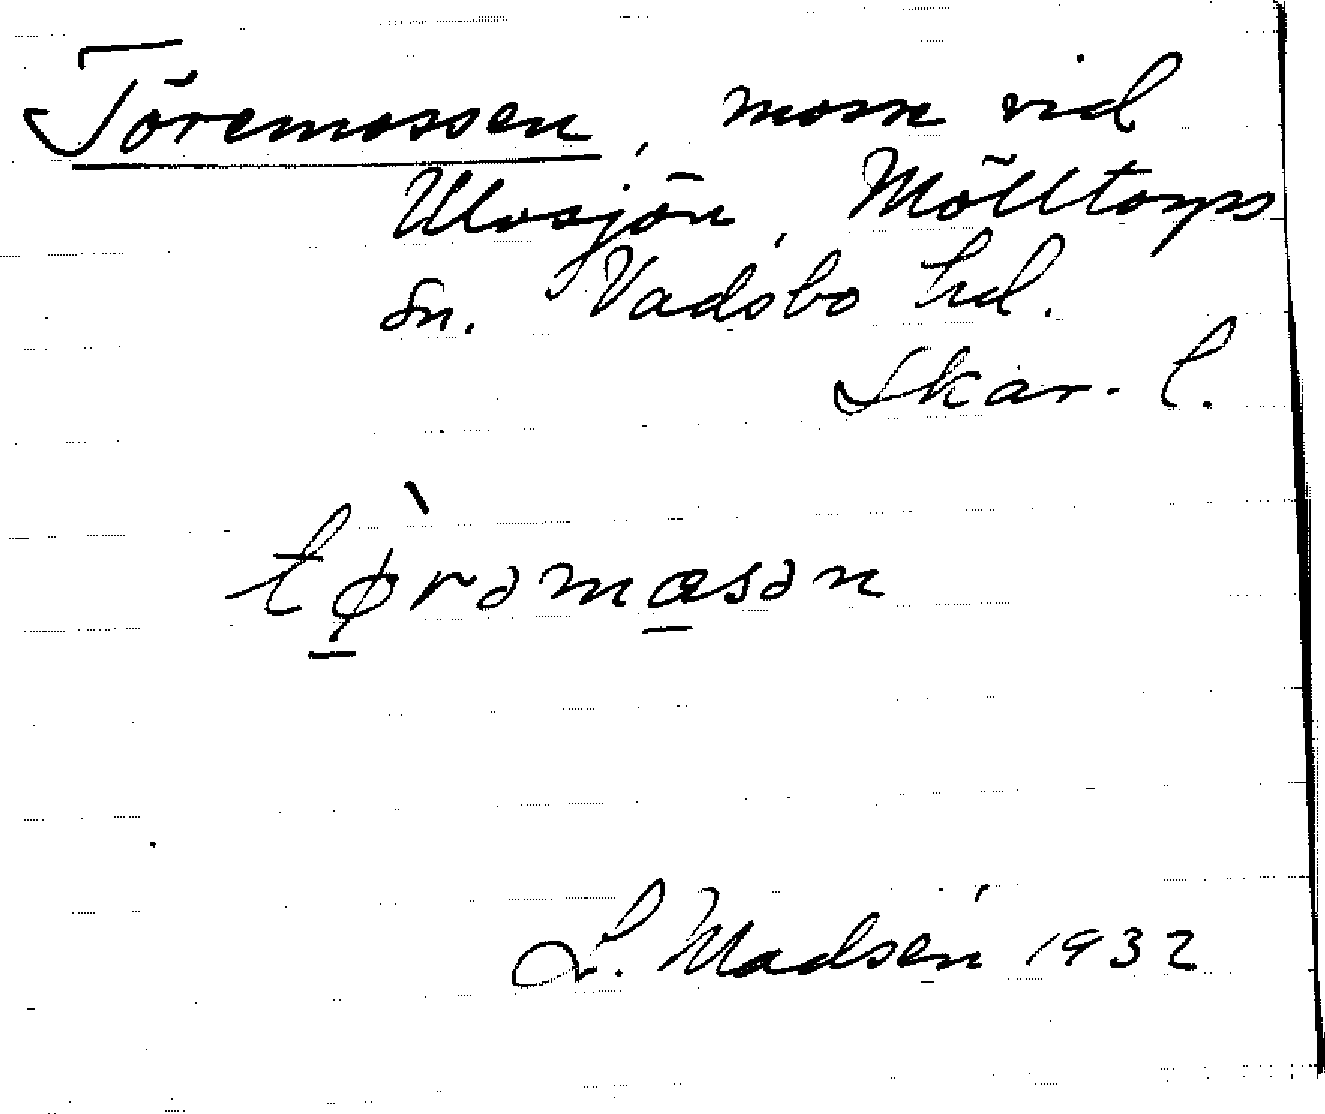 Töremossen, mosse vid
Ulvsjön, Mölltorps
sn. Vadsbo hd.
Skar. l.
tø̀rəmɷsən
L. Madsén 1932